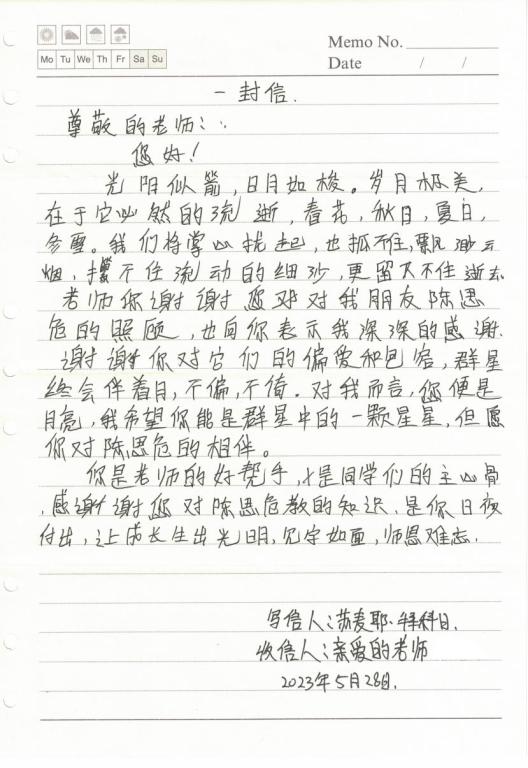 Memo No.
Mo Tu We Th Fr Sa Su
Date / /
一封信.
尊敬的老师：.
您好！
光阴似箭，日月如梭。岁月极美，
在于它必然的流逝，春花，秋月，夏日，
冬雪。我们将掌心拢起，也抓不住飘渺云
烟，握不住流动的细沙，更留不住逝去
老师你谢谢您对对我朋友陈思
危的照顾，也向你表示我深深的感谢.
谢谢你对它们的偏爱和包容，群星
终会伴着月，不偏，不倚。对我而言，您便是
月亮，我希望你能是群星中的一颗星星，但愿
你对陈思危的相伴。
你是老师的好帮手，是同学们的主心骨
，感谢谢您对陈思危教的知识，是你日夜
付出，让成长生出光明，见字如面，师恩难忘.
写信人：苏麦耶·拜科日.
收信人：亲爱的老师
2023年5月28日.